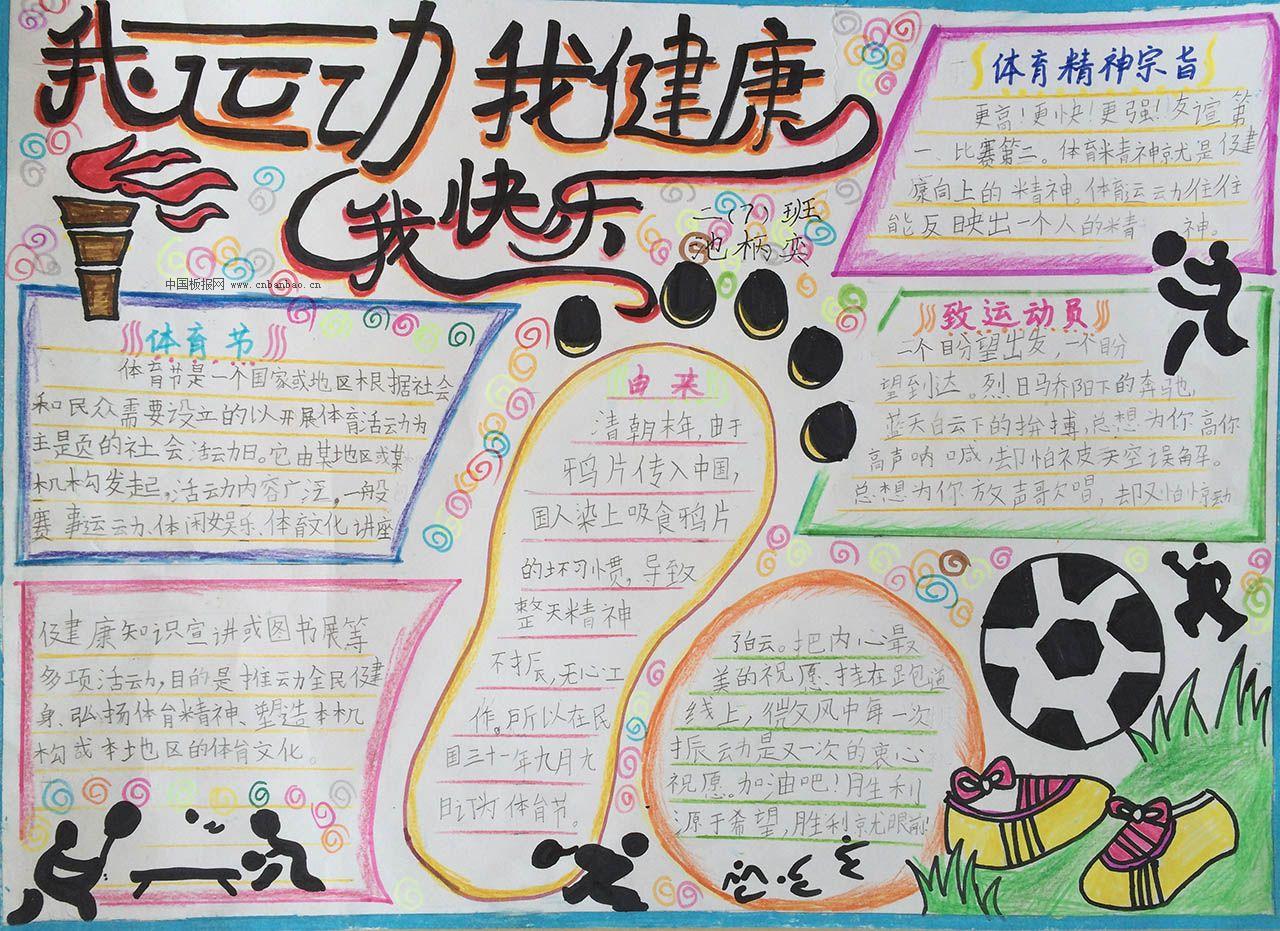 我运动 我健康
我快乐
二(7)班
池柄奕
中国板报网 www.cnbanbao.cn
体育节
体育节是一个国家或地区根据社会
和民众需要设立的以开展体育活动为
主是页的社会活动日。它由某地区或某
机构发起,活动内容广泛,一般
赛事运动、休闲娱乐、体育文化讲座
健康知识宣讲或图书展等
多项活动,目的是推动全民健
身、弘扬体育精神、塑造本机
构或本地区的体育文化。
由来
清朝末年,由于
鸦片传入中国,
国人染上吸食鸦片
的坏习惯,导致
整天精神
不振,无心工
作。所以在民
国三十一年九月九
日订为体育节。
体育精神宗旨
更高!更快!更强!友谊第
一、比赛第二。体育精神就是健
康向上的精神。体育运动往往
能反映出一个人的精 神。
致运动员
一个盼望出发,一个盼
望到达。烈日骄阳下的奔驰,
蓝天白云下的拚搏,总想为你高
高声呐喊,却怕被天空误解。
总想为你放声歌唱,却又怕惊动
云。把内心最
美的祝愿挂在跑道
线上,微风中每一次
振动是又一次的衷心
祝愿。加油吧!胜利
源于希望,胜利就眼前!